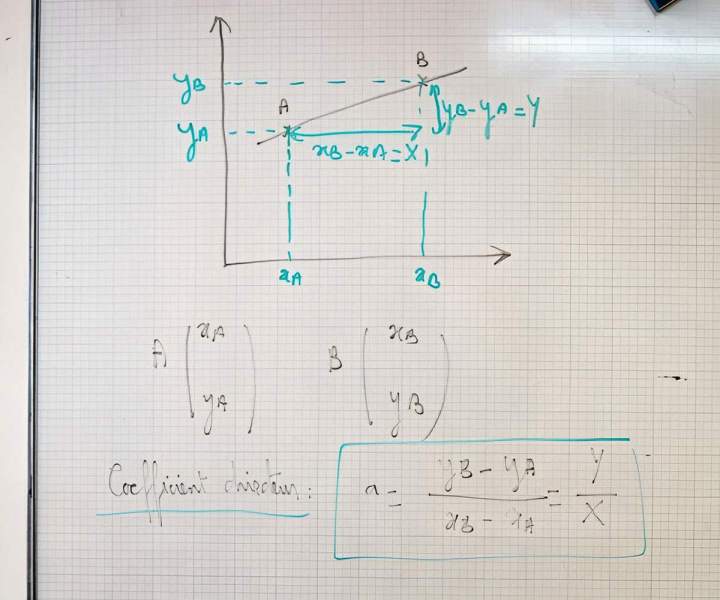 B
yB
A
yB-yA=Y
yA
xB-xA=X
xA
xB
A (xA yA) B (xB yB)
Coefficient directeur : a = yB - yA / xB - xA = Y / X